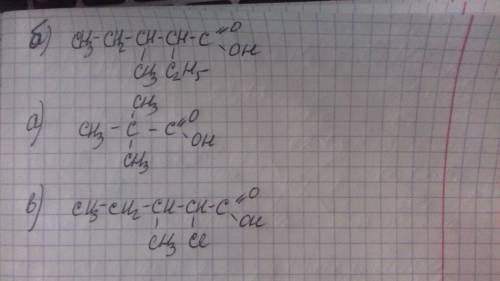 б) CH₃-CH₂-CH-CH-C=O
OH
CH₃ C₂H₅-
CH₃
а) CH₃-C-C=O
OH
CH₃
в) CH₃-CH₂-CH-CH-C=O
OH
CH₃ Cl